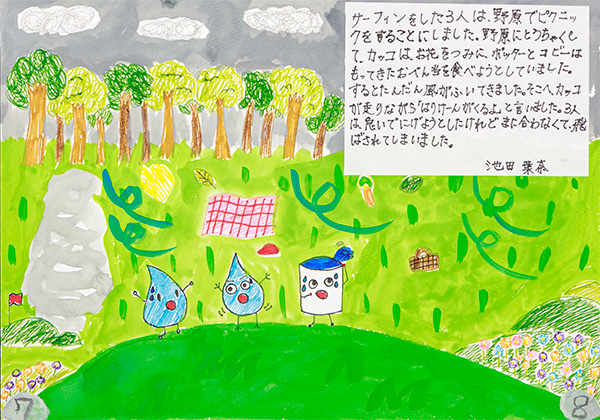 サーフィンをした3人は、野原でピクニッ
クをすることにしました。野原にとうちゃくし
て、カッコは、お花をつみに、ポッターとコビーは
もってきたおべん当を食べようとしていました。
するとだんだん風がふいてきました。そこへカッコ
が走りながら「はりけーんがくるよ。」と言いました。3人
は、急いでにげようとしたけれどまに合わなくて、飛
ばされてしまいました。
池田 葉奈
7
8